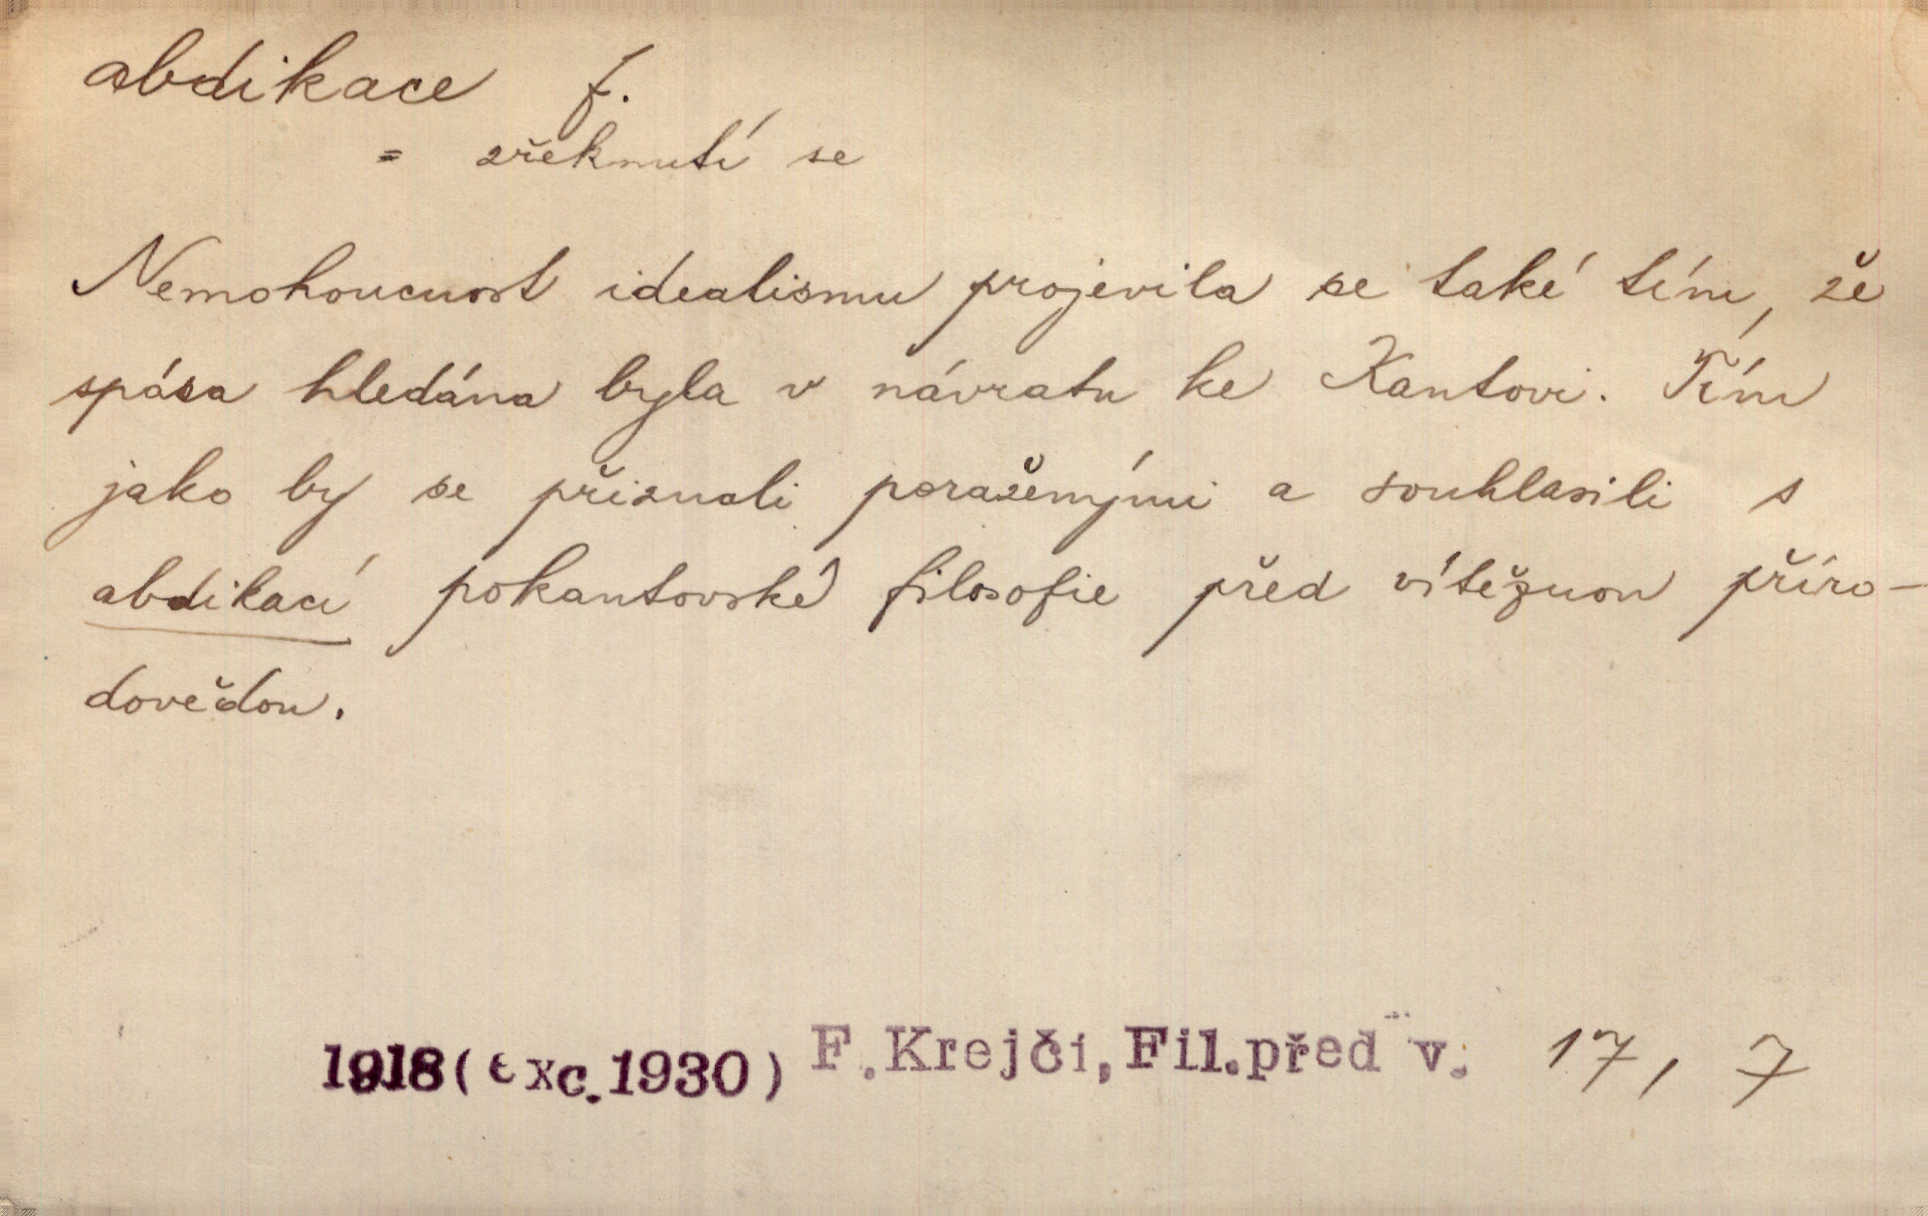 abdikace f.
= zřeknutí se
Nemohoucnost idealismu projevila se také tím, že
spása hledána byla v návratu ke Kantovi. Tím
jako by se přiznali poraženými a souhlasili s
abdikací pokantovské filosofie před vítěznou příro-
dovědou.
1918 (exc. 1930) F. Krejčí, Fil. před v. 17, 7